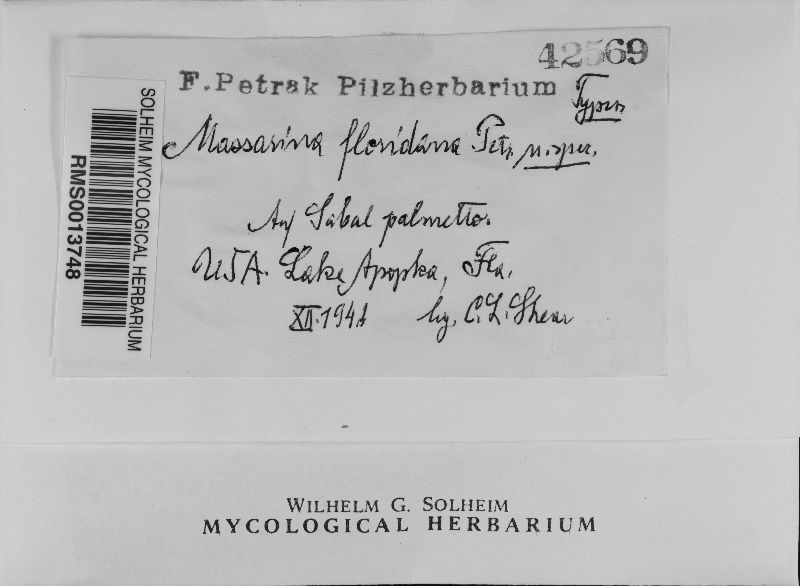 42569
F. Petrak Pilzherbarium
Typus
Massarina floridana Petr. n. spec.
Auf Sabal palmetto.
USA. Lake Apopka, Fla.
XII. 1941 lg. C. L. Shear
SOLHEIM MYCOLOGICAL HERBARIUM
RMS0013748
WILHELM G. SOLHEIM
MYCOLOGICAL HERBARIUM